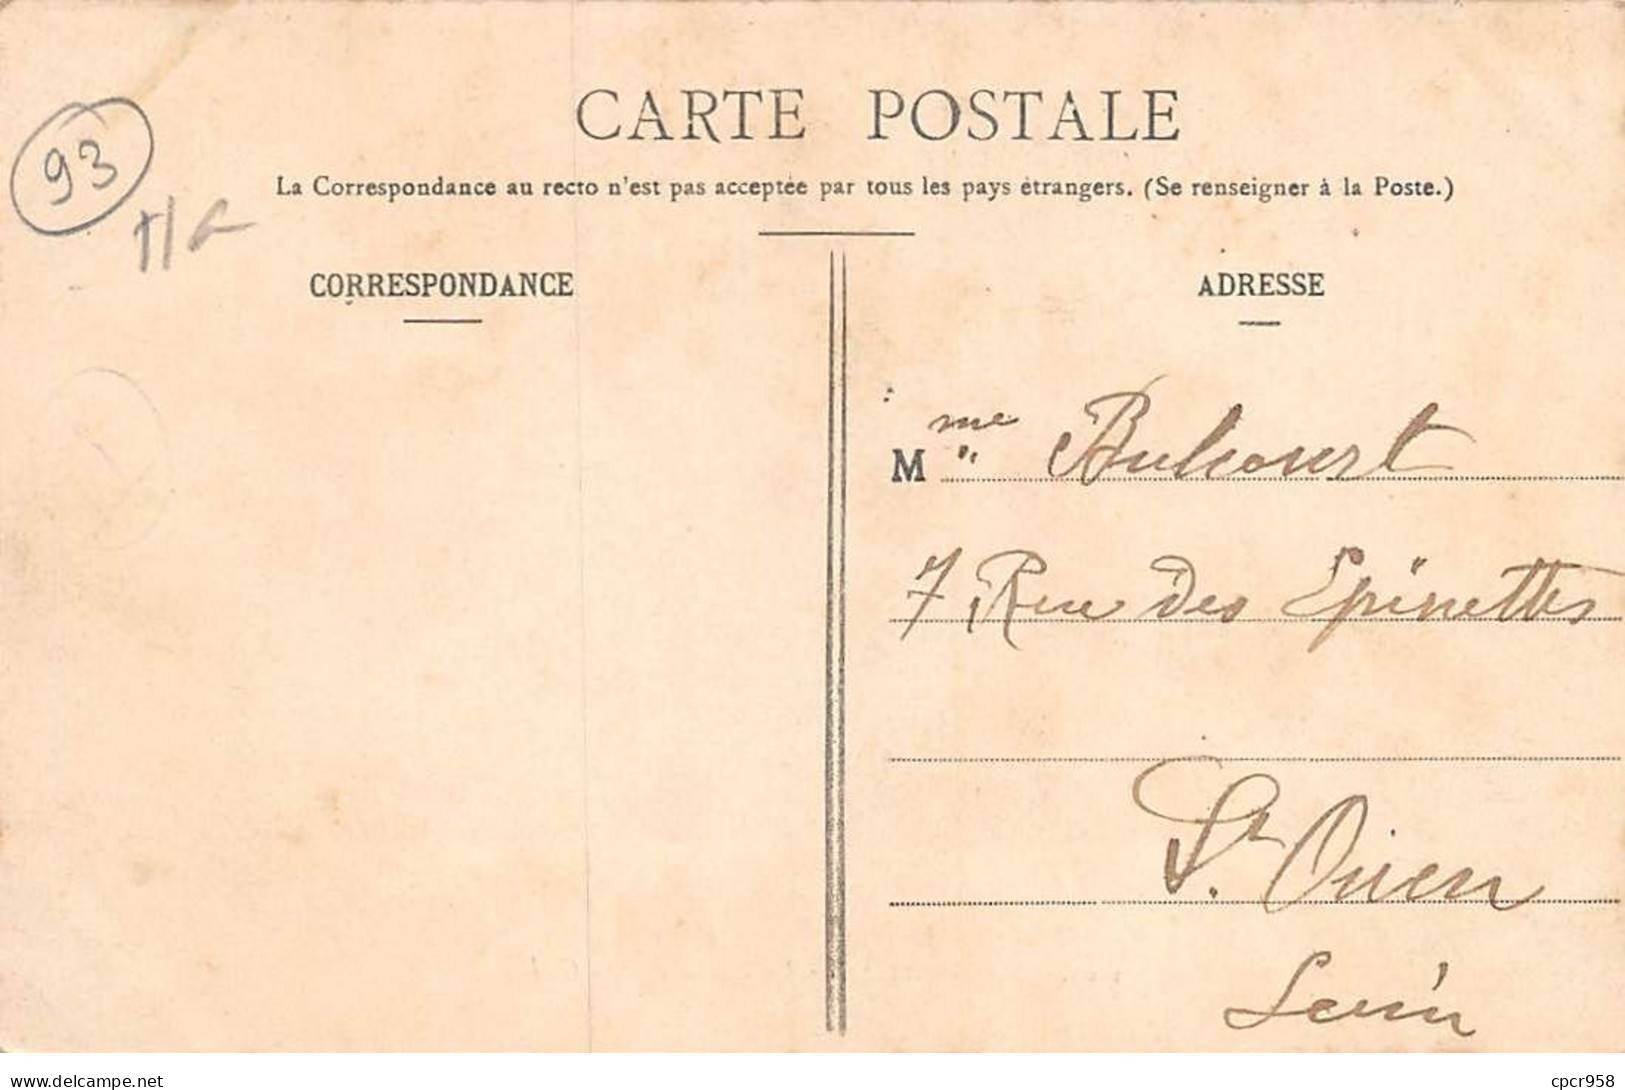 CARTE POSTALE
La Correspondance au recto n'est pas acceptée par tous les pays étrangers. (Se renseigner à la Poste.)
93
CORRESPONDANCE
ADRESSE
Mme
7, Rue des Epinettes
St. Ouen
Seine
delcampe.net
cpcr958